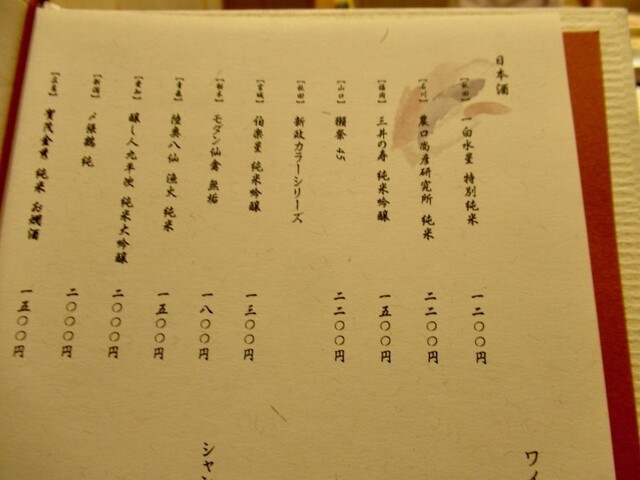 日本酒
【秋田】 一白水星 特別純米 一二〇〇円
【石川】 農口尚彦研究所 純米 二二〇〇円
【福岡】 三井の寿 純米吟醸 一五〇〇円
【山口】 獺祭 45 二二〇〇円
【秋田】 新政カラーシリーズ
【宮城】 伯楽星 純米吟醸 一三〇〇円
【栃木】 モダン仙禽 無垢 一八〇〇円
【青森】 陸奥八仙 漁火 純米 一五〇〇円
【愛知】 醸し人九平次 純米大吟醸 二〇〇〇円
【新潟】 〆張鶴 純 二〇〇〇円
【広島】 賀茂金秀 純米 お燗酒 一五〇〇円
ワイ
シャン